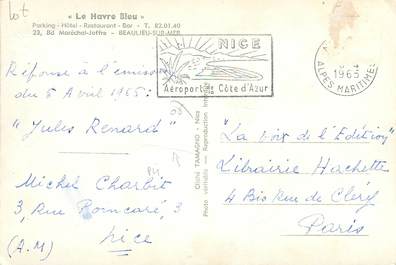 Lot
« Le Havre Bleu »
Parking - Hôtel - Restaurant - Bar - T. 82.01.40
23, Bd Maréchal-Joffre - BEAULIEU-SUR-MER
NICE
Aéroport de Côte d'Azur
1965
ALPES MARITIMES
Réponse à l'émission
du 5 Avril 1965:
"Jules Renard"
Michel Charbit
3, Rue Poincaré, 3
Nice
(A.M)
Photo véritable - Reproduction
"La Voix de l'Edition"
Librairie Hachette
4 Bis Rue de Cléry
Paris